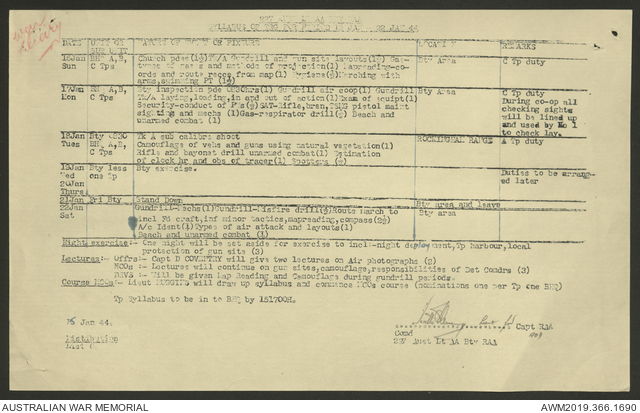 SYLLABUS OF TRG FOR PERIOD 16 JAN - 22 JAN 44
DATE UNIT OR SUB UNIT NATURE OF WORK OR FIXTURE LOCATION REMARKS
16Jan BHQ A,B, Church pde (1½) /A Gundrill and gun site layouts(1½) Gas- Bty Area C Tp duty
Sun C Tps types of gases and methods of projection(1) Mapreading-co-
ords and route traces from map(1) Hygiene(½) Marching with
arms, swinging PT (1½)
17Jan BHQ A,B, Bty inspection pde 0830hrs(1) Gundrill air coop(1) Gundrill Bty Area C Tp duty
Mon C Tps laying, loading, in and out of action(1) Exam of equipt(1) During co-op all
Security-conduct of P (½) SAT-rifle, bren, TSMG pistol maint checking sights
sighting and mechs (1) Gas-respirator drill(½) Beach and will be lined up
unarmed combat (1) and used by No 1
to check lay.
18Jan Bty 0830 Tk A sub calibre shoot
Tues BHQ A,B, Camouflage of vehs and guns using natural vegetation(1) ROCKINGHAM RANGE A Tp duty
C Tps Rifle and bayonet drill unarmed combat(1) Estimation
of clock hr and obs of tracer(1) Spotters (½)
19Jan Bty less Bty exercise. Duties to be arrang-
Wed one Tp ed later
20Jan
Thurs
21Jan Fri Bty Stand Down Bty area and leave
22Jan Gundrill-Mechs(1) Gundrill-Misfire drill(½) Route march to Bty area
Sat incl FS craft, inf minor tactics, mapreading, compass(2½)
A/c Ident(½) Types of air attack and layouts(1)
Beach and unarmed combat (1)
Night exercise:- One night will be set aside for exercise to incl-night deployment, Tp harbour, local
protection of gun site (3)
Lectures:- Offrs:- Capt D COVENTRY will give two lectures on Air photographs (2)
NCOs :- Lectures will continue on gun sites, camouflage, responsibilities of Det Comdrs (3)
:- Will be given Map Reading and Camouflage during gundrill periods.
Course NCOs:- Lieut HUGGINS will draw up syllabus and commence NCOs course (nominations one per Tp one BHQ)
Tp Syllabus to be in to BHQ by 151700H.
15 Jan 44.
Capt RAA
Comd
Aust Lt AA Bty RAA
Distribution
List
AUSTRALIAN WAR MEMORIAL
AWM2019.366.1690